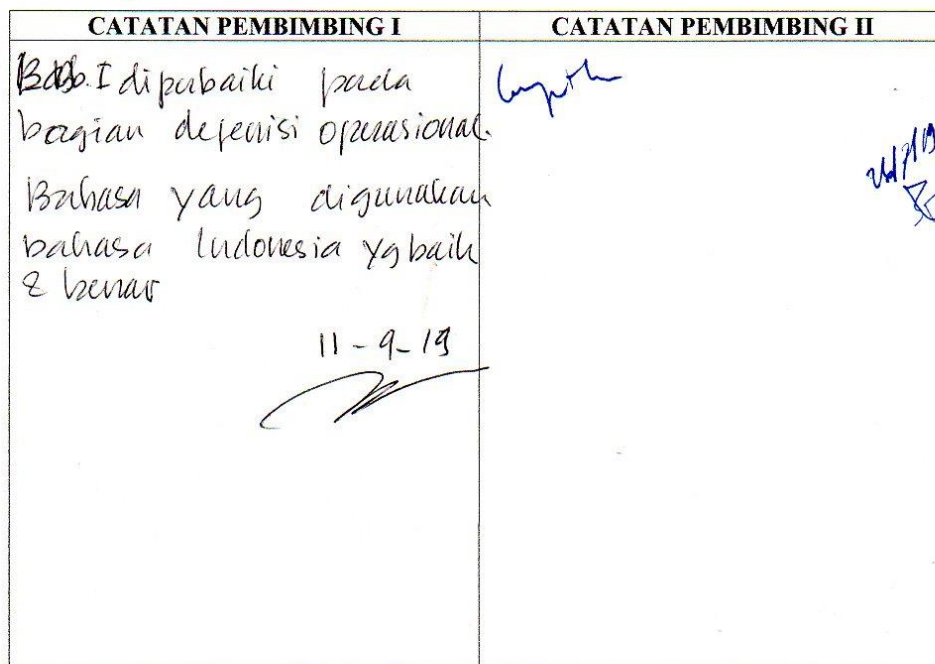 CATATAN PEMBIMBING I
CATATAN PEMBIMBING II
Bab. I diperbaiki pada
bagian defenisi operasional.
Bahasa yang digunakan
bahasa Indonesia yg baik
& benar
11-9-19